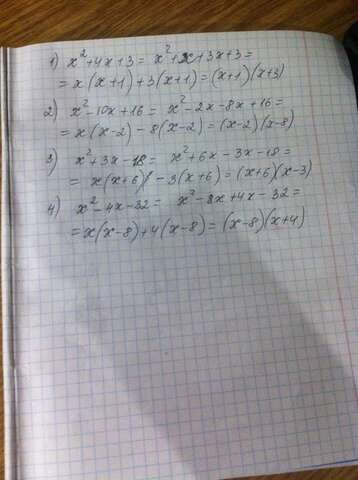 1) x²+4x+3= x²+x+3x+3=
=x(x+1)+3(x+1)=(x+1)(x+3)
2) x²-10x+16= x²-2x-8x+16=
=x(x-2)-8(x-2)=(x-2)(x-8)
3) x²+3x-18= x²+6x-3x-18=
= x(x+6)-3(x+6)=(x+6)(x-3)
4) x²-4x-32= x²-8x+4x-32=
=x(x-8)+4(x-8)=(x-8)(x+4)